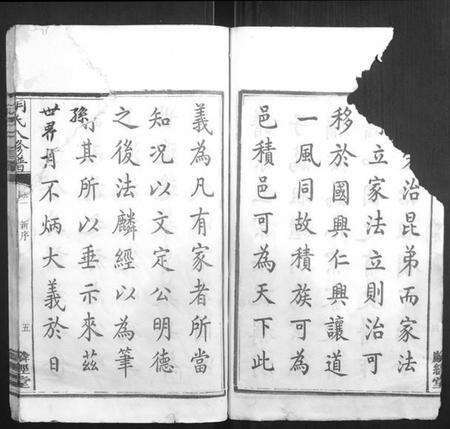 治昆弟而家法
立家法立則治可
移於國興仁興讓道
一風同故積族可為
邑積邑可為天下此
義為凡有家者所當
知况以文定公明德
之後法麟經以為筆
其所以垂示來茲
孫
世界肯不炳大義於日
氏八修譜
新序
五
經堂